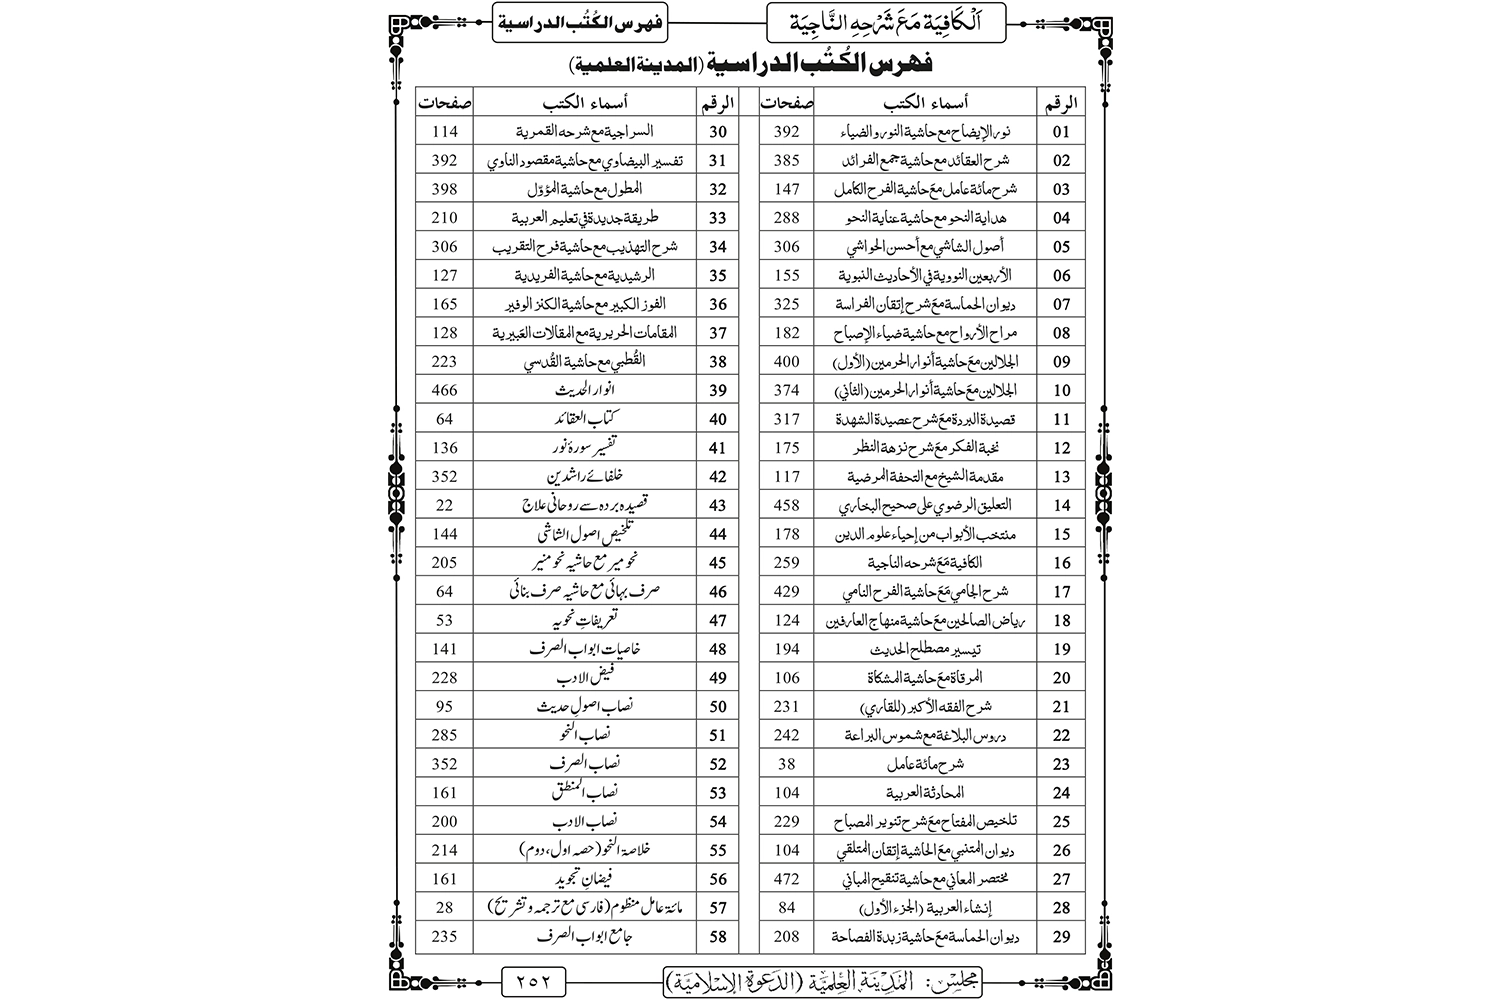 اَلْكَافِيَة مَعَ شَرْحِهِ النَّاجِيَة
فهرس الكُتُب الدراسية
فهرس الكُتُب الدراسية (المدينة العلمية)
الرقم أسماء الكتب صفحات الرقم أسماء الكتب صفحات
01 نور الإيضاح مع حاشية النور والضياء 392 30 السراجية مع شرحه القمرية 114
02 شرح العقائد مع حاشية جمع الفرائد 385 31 تفسير البيضاوي مع حاشية مقصود الناوي 392
03 شرح مائة عامل معَ حاشية الفرح الكامل 147 32 المطول مع حاشية المؤوّل 398
04 هداية النحو مع حاشية عناية النحو 288 33 طريقة جديدة في تعليم العربية 210
05 أصول الشاشي مع أحسن الحواشي 306 34 شرح التهذيب مع حاشية فرح التقريب 306
06 الأربعين النووية في الأحاديث النبوية 155 35 الرشيدية مع حاشية الفريدية 127
07 ديوان الحماسة معَ شرح إتقان الفراسة 325 36 الفوز الكبير مع حاشية الكنز الوفير 165
08 مراح الأرواح مع حاشية ضياء الإصباح 182 37 المقامات الحريرية مع المقالات العَبيرية 128
09 الجلالين معَ حاشية أنوار الحرمين (الأول) 400 38 القُطبي مع حاشية القُدسي 223
10 الجلالين معَ حاشية أنوار الحرمين (الثاني) 374 39 انوار الحدیث 466
11 قصيدة البردة معَ شرح عصيدة الشهدة 317 40 کتاب العقائد 64
12 نخبة الفكر معَ شرح نزهة النظر 175 41 تفسیر سورۂ نور 136
13 مقدمة الشيخ مع التحفة المرضية 117 42 خلفائے راشدین 352
14 التعليق الرضوي على صحيح البخاري 458 43 قصیدہ بردہ سے روحانی علاج 22
15 منتخب الأبواب من إحياء علوم الدين 178 44 تلخیص اصول الشاشی 144
16 الكافية مَعَ شرحه الناجية 259 45 نحو میر مع حاشیہ نحو منیر 205
17 شرح الجامي مَعَ حاشية الفرح النامي 429 46 صرف بہائی مع حاشیہ صرف بنائی 64
18 رياض الصالحين معَ حاشية منهاج العارفين 124 47 تعریفاتِ نحویہ 53
19 تيسير مصطلح الحديث 194 48 خاصیات ابواب الصرف 141
20 المرقاة معَ حاشية المشكاة 106 49 فیض الادب 228
21 شرح الفقه الأكبر (للقاري) 231 50 نصاب اصولِ حدیث 95
22 دروس البلاغة مع شموس البراعة 242 51 نصاب النحو 285
23 شرح مائة عامل 38 52 نصاب الصرف 352
24 المحادثة العربية 104 53 نصاب المنطق 161
25 تلخيص المفتاح معَ شرح تنوير المصباح 229 54 نصاب الادب 200
26 ديوان المتنبي معَ الحاشية إتقان المتلقي 104 55 خلاصة النحو (حصہ اول، دوم) 214
27 مختصر المعاني مع حاشية تنقيح المباني 472 56 فیضانِ تجوید 161
28 إنشاء العربية (الجزء الأول) 84 57 مائة عامل منظوم (فارسی مع ترجمہ و تشریح) 28
29 ديوان الحماسة معَ حاشية زبدة الفصاحة 208 58 جامع ابواب الصرف 235
مجلس: المَدِيْنَة العِلْمِيَّة (الدَّعْوَة الإسْلَامِيَّة)
٢٥٢